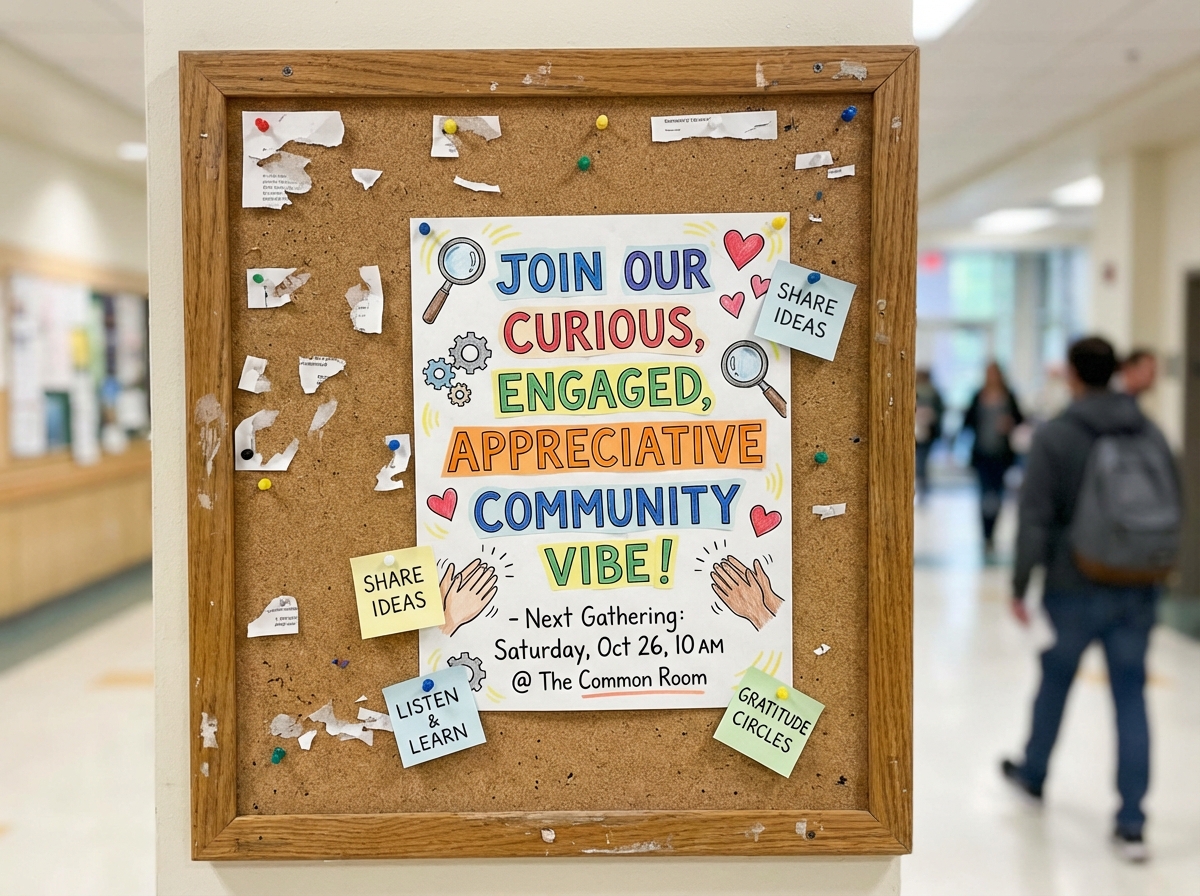 JOIN OUR
CURIOUS,
ENGAGED,
APPRECIATIVE
COMMUNITY
VIBE!
- Next Gathering:
Saturday, Oct 26, 10 AM
@ The Common Room
SHARE
IDEAS
SHARE
IDEAS
LISTEN
&
LEARN
GRATITUDE
CIRCLES